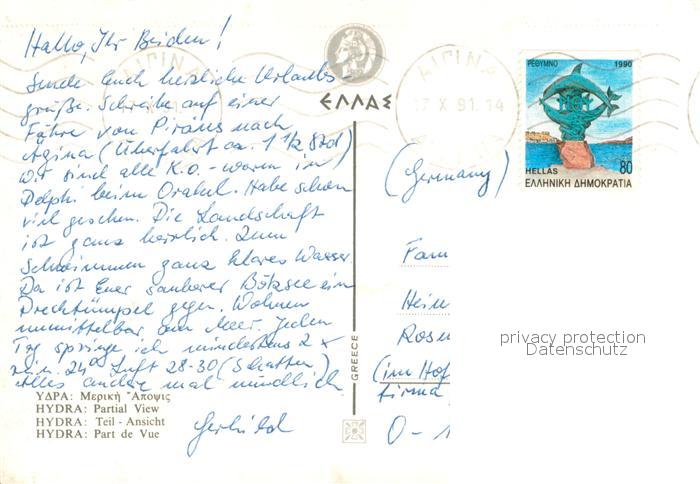 Hallo, Ihr Beiden!
Sende Euch herzliche Urlaubs
grüße. Schreibe auf einer
Fähre von Piräus nach
Agina (Überfahrt ca. 1 1/2 Std)
Wir sind alle K.O. - waren in
Delphi beim Orakel. Habe schon
viel gesehen. Die Landschaft
ist ganz herrlich. Zum
Schwimmen ganz klares Wasser.
Da ist Euer sauberer Bötzsee ein
Drecktümpel gegen. Wohnen
unmittelbar am Meer. Jeden
Tag springe ich mindestens 2 x
rein. 24° Luft 28-30 (Schatten)
Alles andere mal mündlich
Gerhild
ΥΔΡΑ: Μερική Ἄποψις
HYDRA: Partial View
HYDRA: Teil - Ansicht
HYDRA: Part de Vue
ΕΛΛΑΣ
GREECE
ΑΙΓΙΝΑ
17 X 91. 14
ΡΕΘΥΜΝΟ 1990
HELLAS 80
ΕΛΛΗΝΙΚΗ ΔΗΜΟΚΡΑΤΙΑ
(Germany)
Fam
Hein
Rosen
(im Hof
Firma
O - 1
privacy protection
Datenschutz